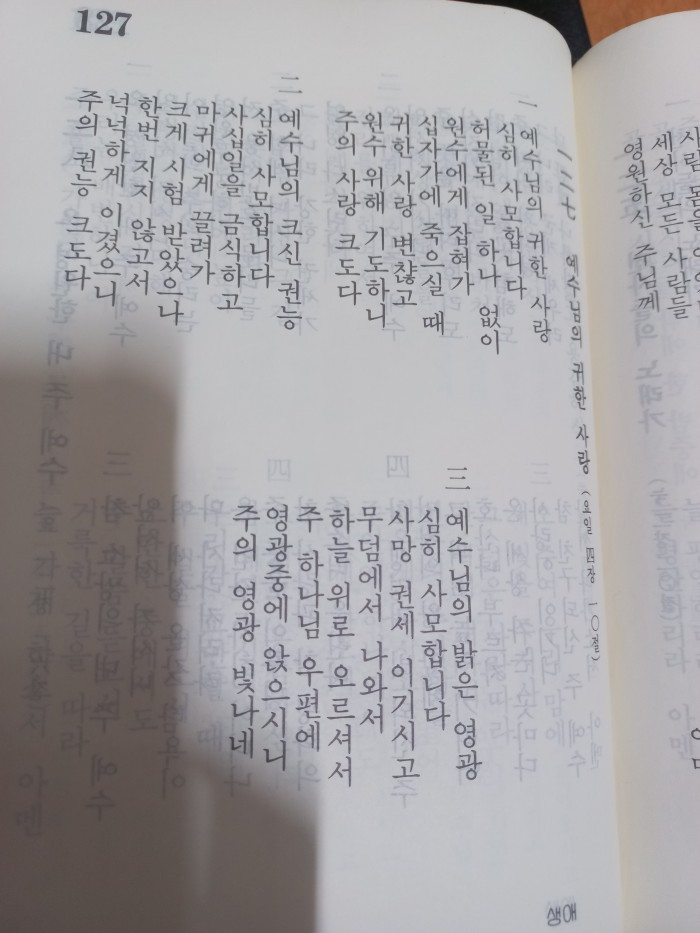 127
一二七 예수님의 귀한 사랑 (요일 四장 一〇절)
一 예수님의 귀한 사랑
심히 사모합니다
허물된 일 하나 없이
원수에게 잡혀가
십자가에 죽으실 때
귀한 사랑 변찮고
원수 위해 기도하니
주의 사랑 크도다
二 예수님의 크신 권능
심히 사모합니다
사십일을 금식하고
마귀에게 끌려가
크게 시험 받았으나
한번 지지 않고서
넉넉하게 이겼으니
주의 권능 크도다
三 예수님의 밝은 영광
심히 사모합니다
사망 권세 이기시고
무덤에서 나와서
하늘 위로 오르셔서
주 하나님 우편에
영광중에 앉으시니
주의 영광 빛나네
생애
세상 모든 사람들
영원하신 주님께